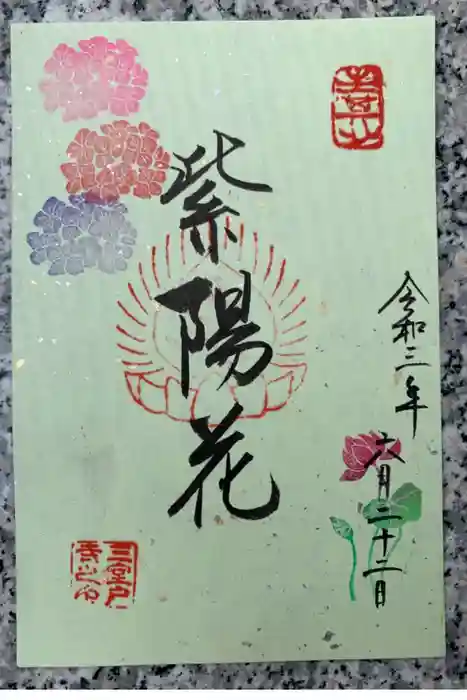 紫陽花
令和三年
六月二十二日
三室戸
寺之印